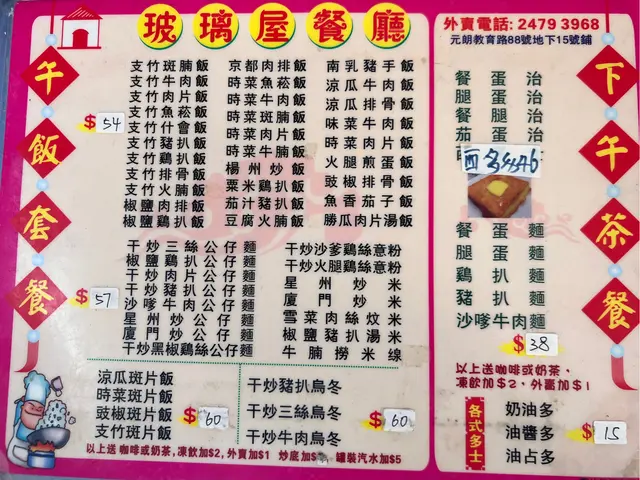 玻璃屋餐廳
午飯套餐
支竹斑腩飯
支竹牛肉飯
支竹肉片飯
支竹魚菘飯
支竹什會飯
支竹豬扒飯
支竹雞扒飯
支竹火腩飯
椒鹽排骨飯
椒鹽雞扒飯
京都肉排飯
時菜魚菘飯
時菜牛肉飯
時菜斑腩飯
時菜肉片飯
時菜牛腩飯
楊州炒飯
粟米雞扒飯
茄汁豬扒飯
豆腐火腩飯
南乳豬手飯
涼瓜牛肉飯
涼瓜排骨飯
味菜牛肉飯
時菜肉片飯
火腿煎蛋飯
豉椒排骨飯
魚香茄子飯
勝瓜肉片湯飯
$54
干炒三絲公仔麵
椒鹽雞扒公仔麵
干炒肉片公仔麵
干炒豬扒公仔麵
沙嗲牛肉公仔麵
星州炒公仔麵
廈門炒公仔麵
干炒黑椒雞絲公仔麵
干炒沙爹雞絲意粉
干炒火腿雞絲意粉
星州炒米
廈門炒米
雪菜肉絲炆米
椒鹽豬扒湯米
牛腩撈米線
$57
涼瓜斑片飯
時菜斑片飯
豉椒斑片飯
支竹斑片飯
$60
干炒豬扒烏冬
干炒三絲烏冬
干炒牛肉烏冬
$60
以上送咖啡或奶茶，凍飲加$2，外賣加$1 炒底加$ 罐裝汽水加$5
外賣電話: 2479 3968
元朗教育路88號地下15號鋪
下午茶餐
餐蛋治
腿蛋治
餐腿治
茄蛋治
西多
$46
餐蛋麵
腿蛋麵
雞扒麵
豬扒麵
沙嗲牛肉麵
$38
以上送咖啡或奶茶，
凍飲加$2，外賣加$1
各式多士
奶油多
油醬多
油占多
$15